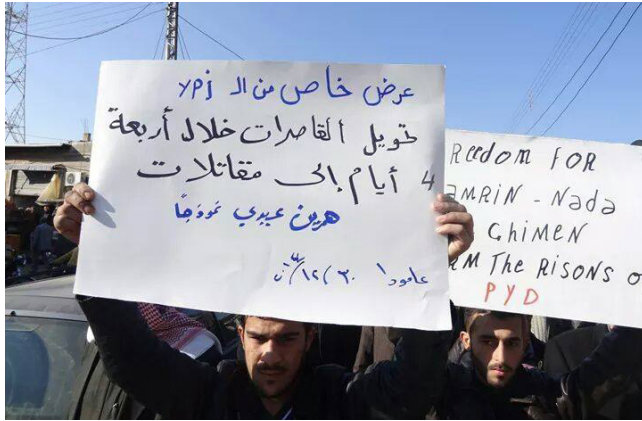 عرض خاص من الـ ypj
تحويل القاصرات خلال أربعة
4 أيام إلى مقاتلات
همرين عيدي نموذجًا
عامودا
REEDOM FOR
AMRIN - Nada
GHIMEN
M The RISONS O
PYD